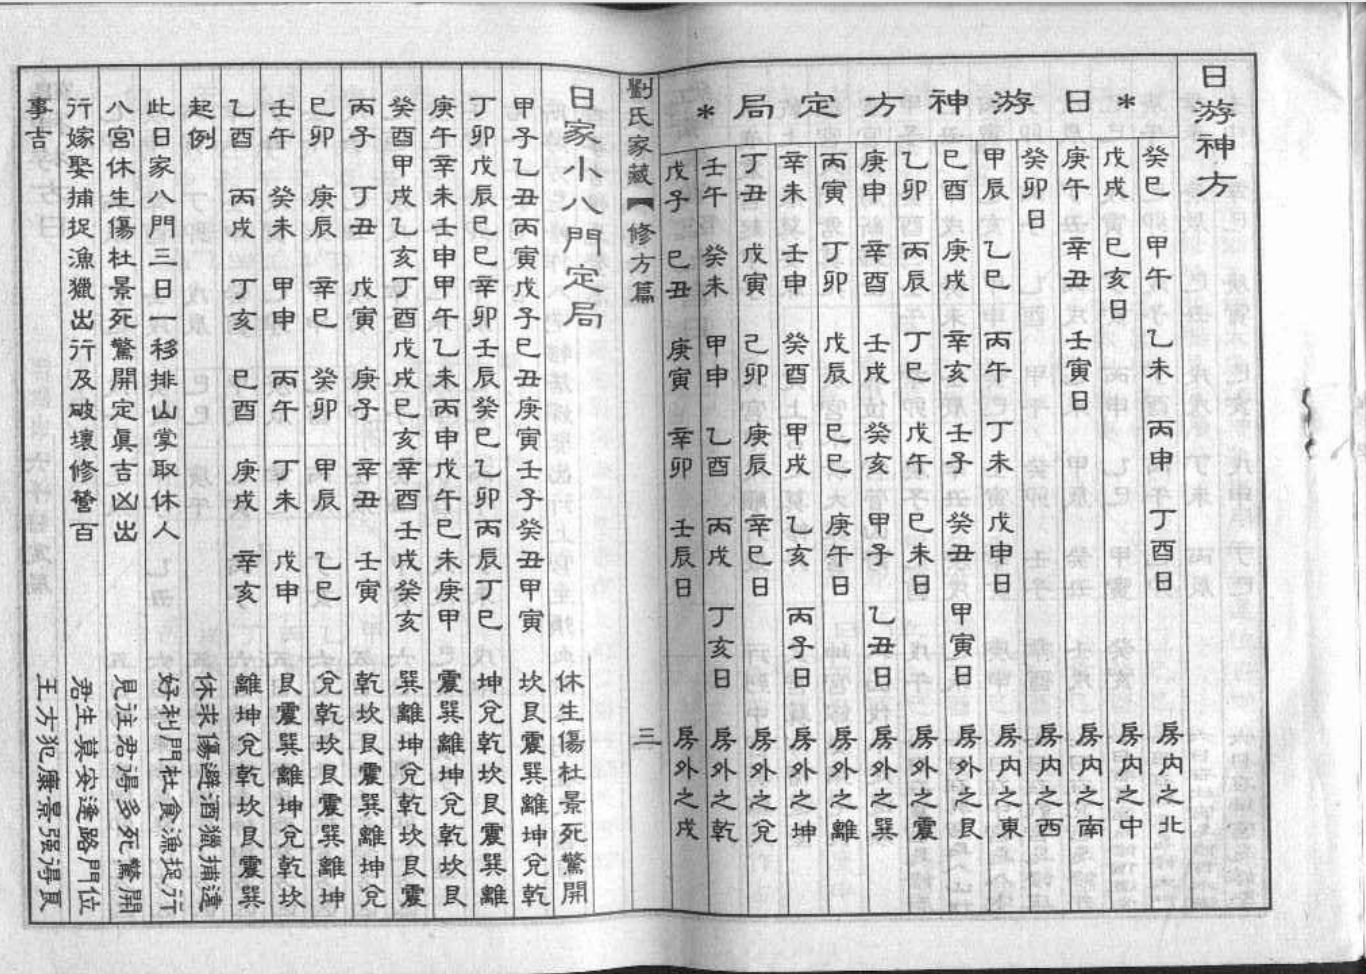 日游神方
＊日游神方定局＊
癸巳 甲午 乙未 丙申 丁酉日 房內之北
戊戌 己亥日 房內之中
庚午 辛丑 壬寅日 房內之南
癸卯日 房內之西
甲辰 乙巳 丙午 丁未 戊申日 房內之東
己酉 庚戌 辛亥 壬子 癸丑 甲寅日 房外之艮
乙卯 丙辰 丁巳 戊午 己未日 房外之震
庚申 辛酉 壬戌 癸亥 甲子 乙丑日 房外之巽
丙寅 丁卯 戊辰 己巳 庚午日 房外之離
辛未 壬申 癸酉 甲戌 乙亥 丙子日 房外之坤
丁丑 戊寅 己卯 庚辰 辛巳日 房外之兌
壬午 癸未 甲申 乙酉 丙戌 丁亥日 房外之乾
戊子 己丑 庚寅 辛卯 壬辰日 房外之戌
劉氏家藏【修方篇 三
日家小八門定局 休生傷杜景死驚開
甲子乙丑丙寅戊子己丑庚寅壬子癸丑甲寅 坎艮震巽離坤兌乾
丁卯戊辰己巳辛卯壬辰癸巳乙卯丙辰丁巳 坤兌乾坎艮震巽離
庚午辛未壬申甲午乙未丙申戊午己未庚甲 震巽離坤兌乾坎艮
癸酉甲戌乙亥丁酉戊戌己亥辛酉壬戌癸亥 巽離坤兌乾坎艮震
丙子 丁丑 戊寅 庚子 辛丑 壬寅 乾坎艮震巽離坤兌
己卯 庚辰 辛巳 癸卯 甲辰 乙巳 兌乾坎艮震巽離坤
壬午 癸未 甲申 丙午 丁未 戊申 艮震巽離坤兌乾坎
乙酉 丙戌 丁亥 己酉 庚戌 辛亥 離坤兌乾坎艮震巽
起例 休求傷避酒獵捕
此日家八門三日一移排山掌取休人 好利門杜食漁捉行
八宮休生傷杜景死驚開定眞吉凶出 見君得多死驚開
行嫁娶捕捉漁獵出行及破壞修營百 君生莫安逢路門位
事吉 王方犯康景強得